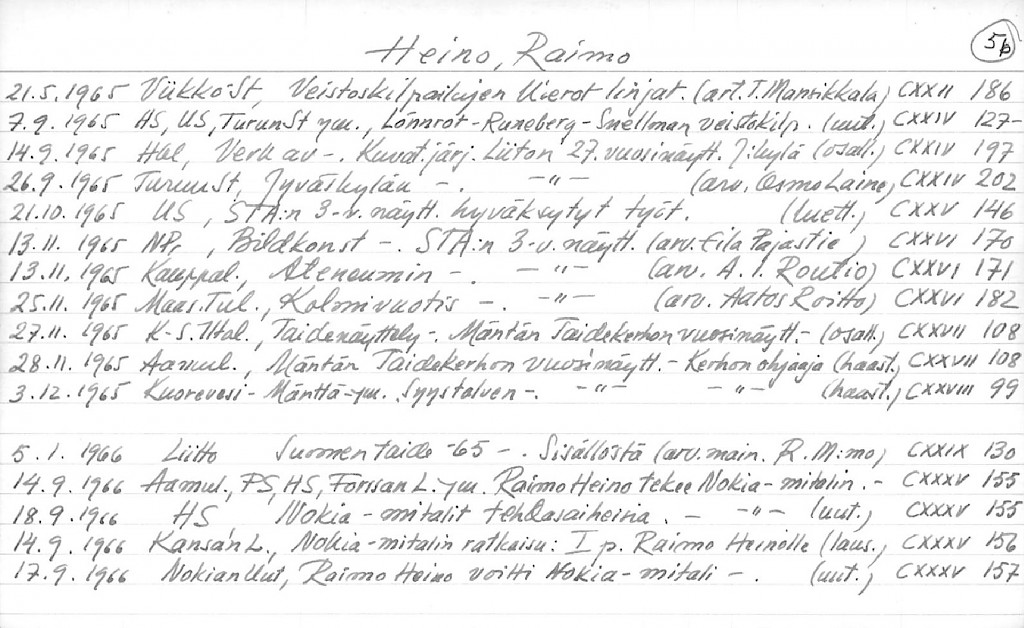 5b
Heino, Raimo
21.5.1965 ViikkoSt, Veistoskilpailujen kierot linjat. (art. T. Mansikkala) CXXII 186
7.9.1965 HS, US, TurunSt ym., Lönnrot-Runeberg-Snellman veistokilp. (uut.) CXXIV 127-
14.9.1965 Hbl, Verk av -. Kuvat.järj. Liiton 27. vuosinäytt. J:kylä (osall.) CXXIV 197
26.9.1965 TurunSt, Jyväskylän -. -"- (arv. Osmo Laine) CXXIV 202
21.10.1965 US, STA:n 3-v. näytt. hyväksytyt työt. (luett.) CXXV 146
13.11.1965 NPr, Bildkonst -. STA:n 3-v. näytt. (arv. Eila Pajastie) CXXVI 170
13.11.1965 Kauppal., Ateneumin -. -"- (arv. A. I. Routio) CXXVI 171
25.11.1965 Maas.Tul., Kolmivuotis -. -"- (arv. Aatos Roitto) CXXVI 182
27.11.1965 K-S. Iltal., Taidenäyttely -. Mäntän Taidekerhon vuosinäytt. - (osall.) CXXVII 108
28.11.1965 Aamul., Mäntän Taidekerhon vuosinäytt. - Kerhon ohjaaja (haast.) CXXVII 108
3.12.1965 Kuorevesi-Mänttä-ym. Syystalven -. -"- -"- (haast.) CXXVIII 99
5.1.1966 Liitto Suomen taide -65 -. Sisällöstä (arv. main. R. M:mo) CXXIX 130
14.9.1966 Aamul., PS, HS, Forssan L. ym. Raimo Heino tekee Nokia-mitalin. - CXXXV 155
18.9.1966 HS, Nokia-mitalit tehdasaiheisia. - -"- (uut.) CXXXV 155
14.9.1966 Kansan L., Nokia-mitalin ratkaisu: I p. Raimo Heinolle (laus.) CXXXV 156
17.9.1966 Nokian Uut, Raimo Heino voitti Nokia-mitali -. (uut.) CXXXV 157